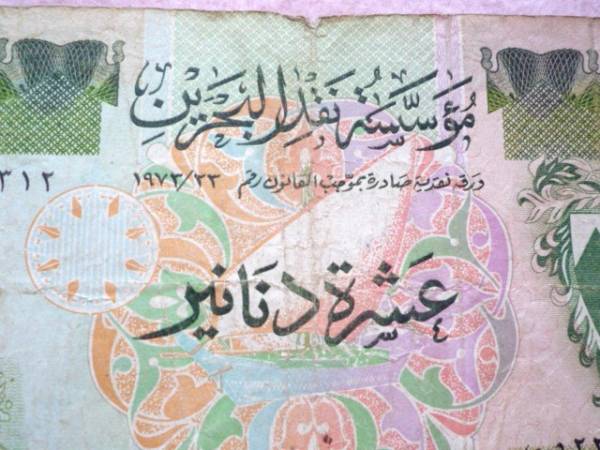 مُؤَسَّسَةُ نَقْدِ البَحْرَينِ
ورقة نقدية صادرة بموجب القانون رقم ١٩٧٣/٢٣
٣١٢
عَشَرَة دَنَانِير